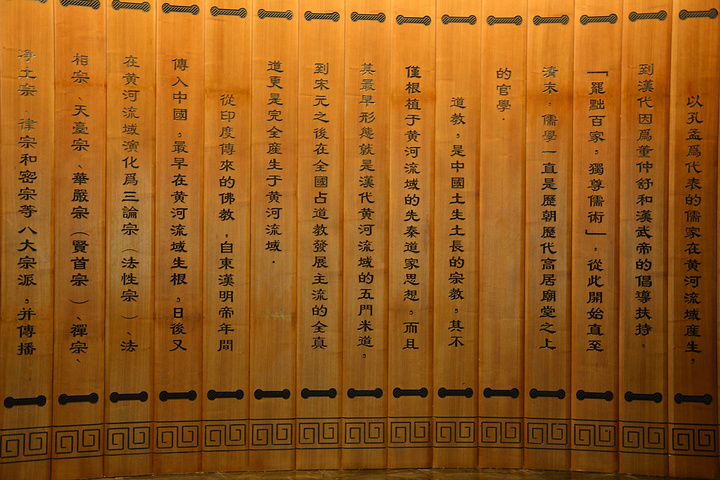 以孔孟爲代表的儒家在黄河流域産生，
到漢代因爲董仲舒和漢武帝的倡導扶持，
「罷黜百家，獨尊儒術」，從此開始直至
清末，儒學一直是歷朝歷代高居廟堂之上
的官學．
道教，是中國土生土長的宗教，其不
僅根植于黄河流域的先秦道家思想，而且
其最早形態就是漢代黄河流域的五門米道，
到宋元之後在全國占道教發展主流的全真
道更是完全産生于黄河流域．
從印度傳來的佛教，自東漢明帝年間
傳入中國，最早在黄河流域生根，日後又
在黄河流域演化爲三論宗（法性宗）、法
相宗、天臺宗、華嚴宗（賢首宗）、禪宗、
净土宗、律宗和密宗等八大宗派，并傳播